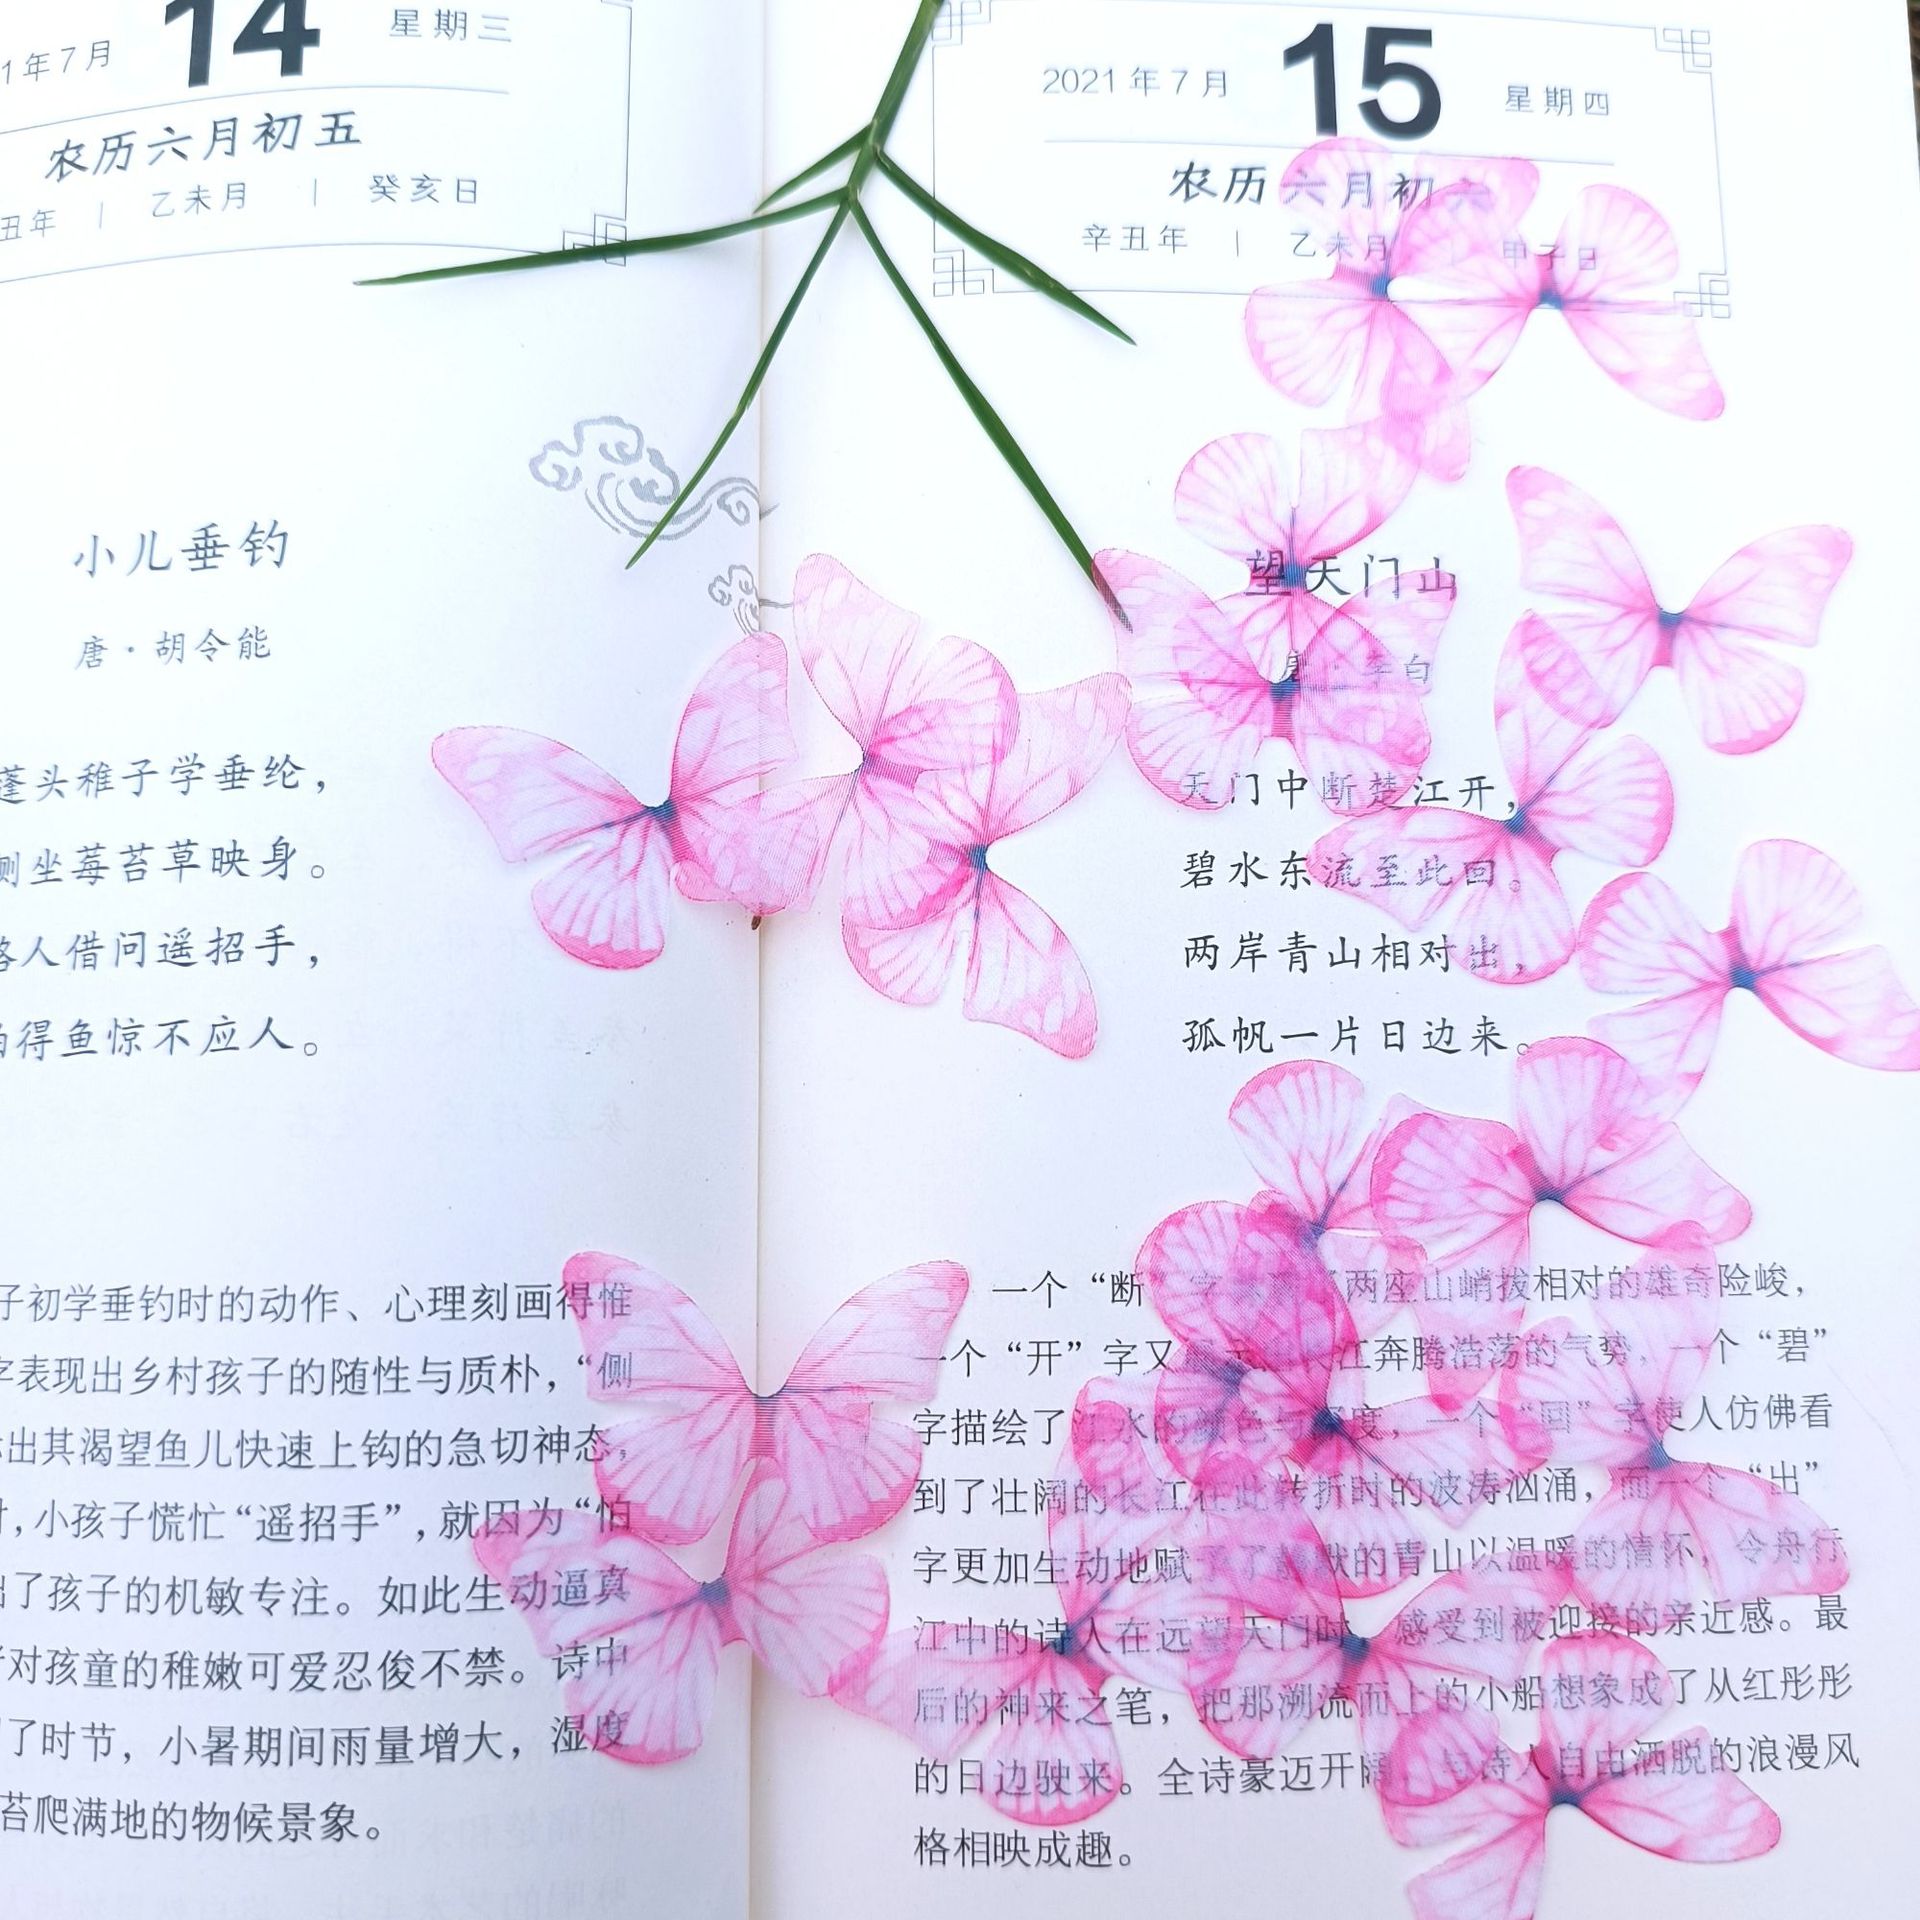 1年7月 14 星期三
农历六月初五
丑年 | 乙未月 | 癸亥日
小儿垂钓
唐·胡令能
蓬头稚子学垂纶，
侧坐莓苔草映身。
路人借问遥招手，
怕得鱼惊不应人。
子初学垂钓时的动作、心理刻画得惟
字表现出乡村孩子的随性与质朴，“侧
出其渴望鱼儿快速上钩的急切神态，
，小孩子慌忙“遥招手”，就因为“怕
出了孩子的机敏专注。如此生动逼真
对孩童的稚嫩可爱忍俊不禁。诗中
了时节，小暑期间雨量增大，湿度
苔爬满地的物候景象。
2021年7月 15 星期四
农历六月初六
辛丑年 | 乙未月 | 甲子日
望天门山
唐·李白
天门中断楚江开，
碧水东流至此回。
两岸青山相对出，
孤帆一片日边来。
一个“断”字 两座山峭拔相对的雄奇险峻，
一个“开”字又 江奔腾浩荡的气势，一个“碧”
字描绘了江水的颜色与 度，一个“回”字使人仿佛看
到了壮阔的长江在此转折时的波涛汹涌，而一个“出”
字更加生动地赋予了静默的青山以温暖的情怀，令舟行
江中的诗人在远望天门时，感受到被迎接的亲近感。最
后的神来之笔，把那溯流而上的小船想象成了从红彤彤
的日边驶来。全诗豪迈开阔，与诗人自由洒脱的浪漫风
格相映成趣。